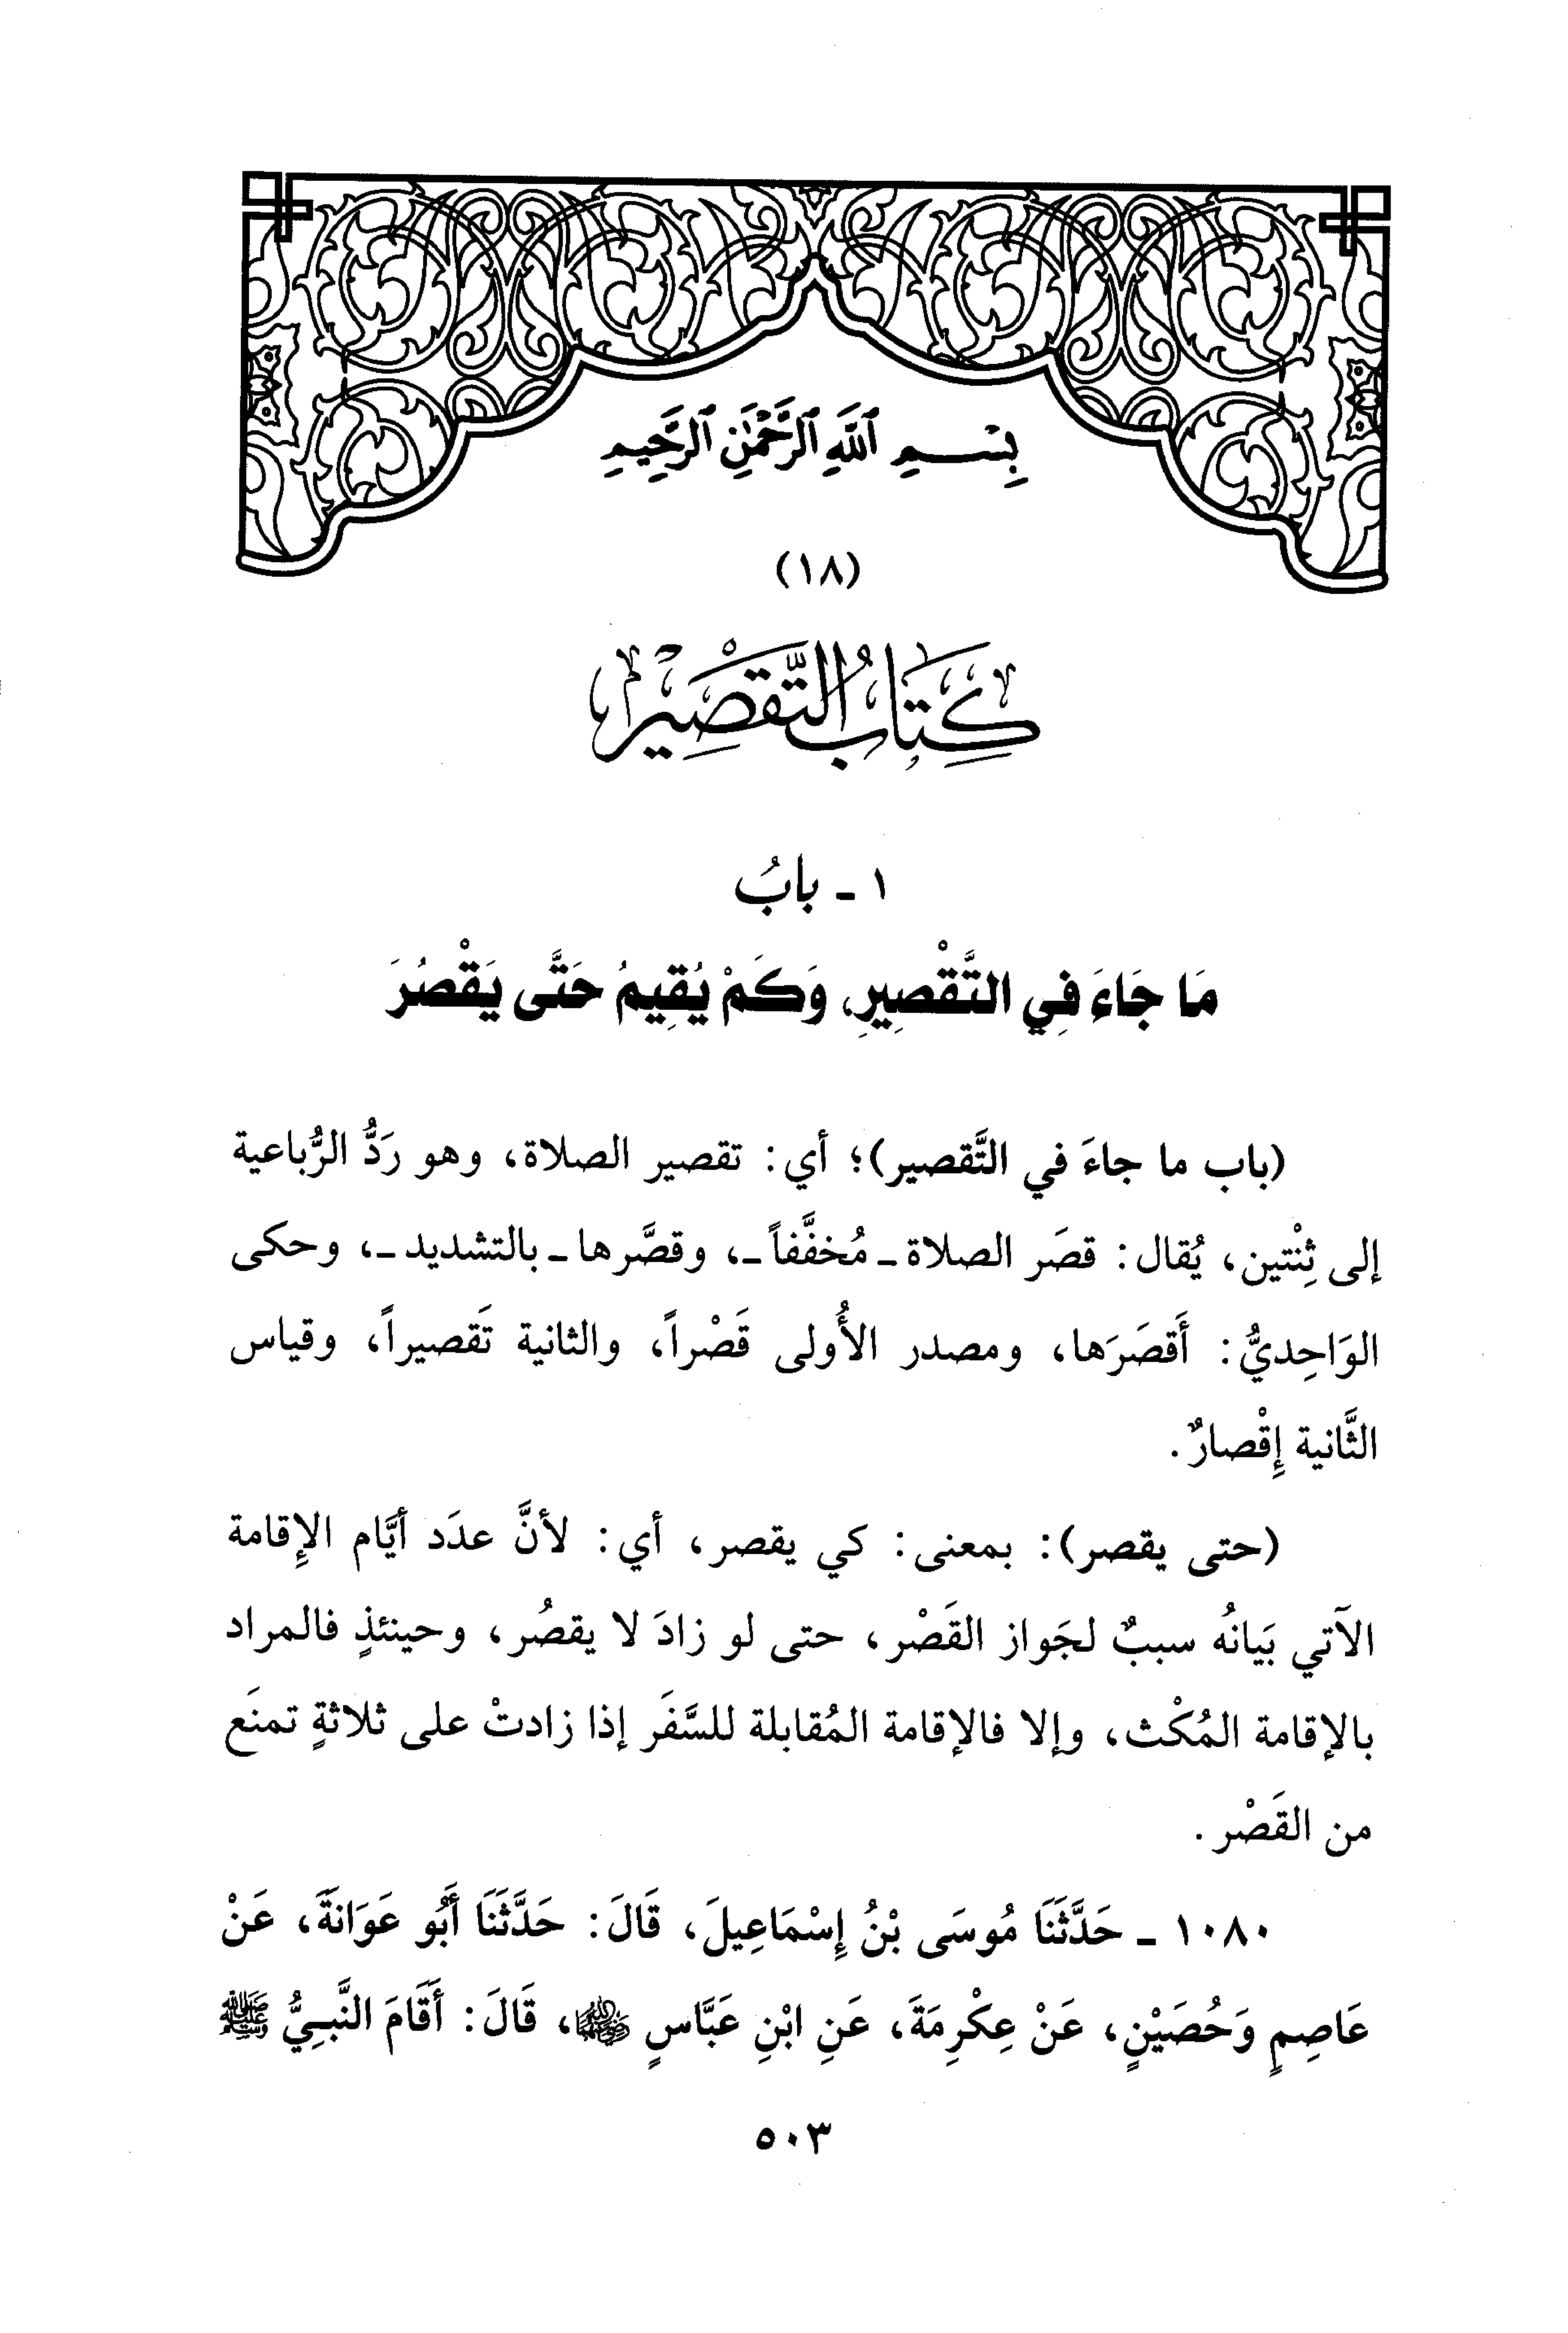 بِسْمِ ٱللَّهِ ٱلرَّحْمَٰنِ ٱلرَّحِيمِ
(١٨)
كِتَابُ التَّقْصِيرِ
١ ـ بابُ
مَا جَاءَ فِي التَّقْصِيرِ، وَكَمْ يُقِيمُ حَتَّى يَقْصُرَ
(باب ما جاءَ في التَّقصير)؛ أي: تقصير الصلاة، وهو رَدُّ الرُّباعية
إلى ثِنْتين، يُقال: قصَر الصلاة ـ مُخفَّفاً ـ، وقصَّرها ـ بالتشديد ـ، وحكى
الوَاحِديُّ: أَقصَرَها، ومصدر الأُولى قَصْراً، والثانية تَقصيراً، وقياس
الثَّانية إِقْصارٌ.
(حتى يقصر): بمعنى: كي يقصر، أي: لأنَّ عدَد أيَّام الإِقامة
الآتي بَيانُه سببٌ لجَواز القَصْر، حتى لو زادَ لا يقصُر، وحينئذٍ فالمراد
بالإقامة المُكْث، وإلا فالإقامة المُقابلة للسَّفَر إذا زادتْ على ثلاثةٍ تمنَع
من القَصْر.
١٠٨٠ ـ حَدَّثَنَا مُوسَى بْنُ إِسْمَاعِيلَ، قَالَ: حَدَّثَنَا أَبُو عَوَانَةَ، عَنْ
عَاصِمٍ وَحُصَيْنٍ، عَنْ عِكْرِمَةَ، عَنِ ابْنِ عَبَّاسٍ رضي الله عنهما، قَالَ: أَقَامَ النَّبِيُّ ﷺ
٥٠٣